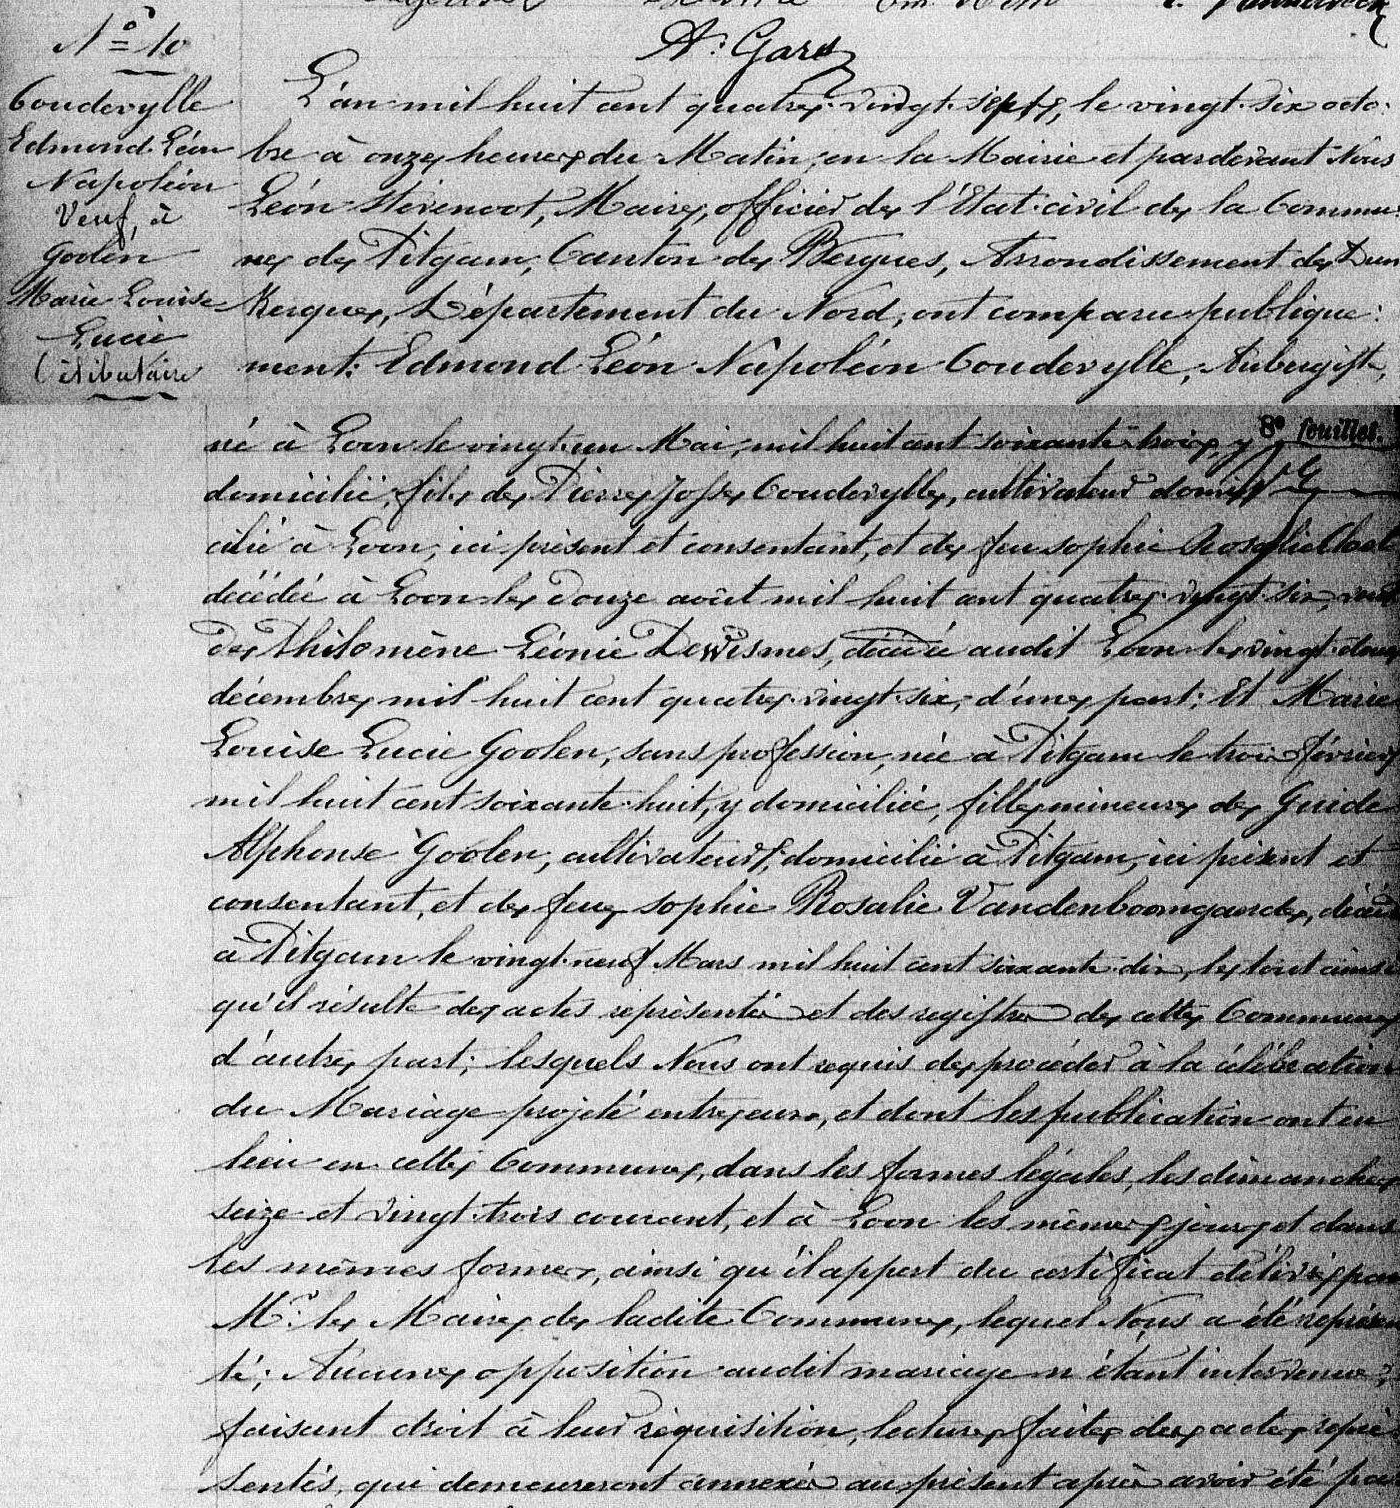 A. Gars
N° 10
Coudevylle
Edmond Léon
Napoléon
Veuf, à
Goolen
Marie Louise
Lucie
Célibataire
L'an mil huit cent quatre-vingt-sept, le vingt-six octo-
bre à onze heures du Matin, en la Mairie et pardevant Nous
Léon Stévenoot, Maire, officier de l'Etat-civil de la Commu-
ne de Pitgam, Canton de Bergues, Arrondissement de Dun
Kerque, Département du Nord, ont comparu publique-
ment: Edmond Léon Napoléon Coudevylle, Aubergiste,
8e feuillet.
né à Loon le vingt-un Mai, mil huit cent soixante-trois, y
domicilié, fils de Pierre Josse Coudevylle, cultivateur domi-
cilié à Loon, ici présent et consentant, et de feu Sophie Rosalie
décédée à Loon le douze août mil huit cent quatre-vingt-six, veuf
de Philomène Léonie Dewismes, décédée audit Loon le vingt-deux
décembre mil huit cent quatre-vingt-six, d'une part; Et Marie
Louise Lucie Goolen, sans profession, née à Pitgam le trois février
mil huit cent soixante-huit, y domiciliée, fille mineure de Guide
Alphonse Goolen, cultivateur, domicilié à Pitgam, ici présent et
consentant, et de feue Sophie Rosalie Vandenboomgaerde, décédée
à Pitgam le vingt-neuf Mars mil huit cent soixante-dix, le tout ainsi
qu'il résulte des actes représentés et des registres de cette Commune
d'autre part; lesquels Nous ont requis de procéder à la célébration
du Mariage projeté entre eux, et dont les publication ont eu
lieu en cette Commune, dans les formes légales, les dimanches
seize et vingt-trois courant, et à Loon les mêmes jours et dans
les mêmes formes, ainsi qu'il appert du certificat délivré par
Mr. le Maire de ladite Commune, lequel Nous a été représen-
té; Aucune opposition audit mariage n'étant intervenue,
faisant droit à leur réquisition, lecture faite des actes repré-
sentés, qui demeureront annexés au présent après avoir été pa